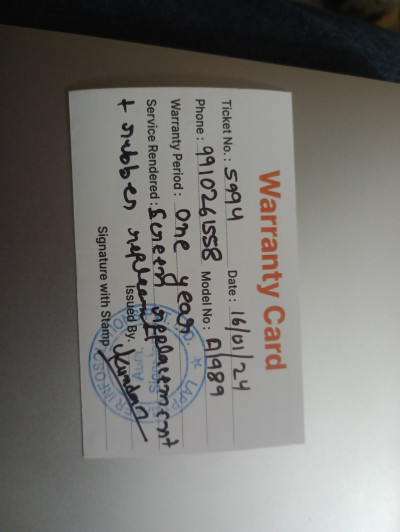 Warranty Card
Ticket No.: 5994 Date: 16/01/24
Phone: 9910261558 Model No: A1989
Warranty Period: One year
Service Rendered: Screen replacement
+ rubber replacement
Issued By. Kundan
Signature with Stamp